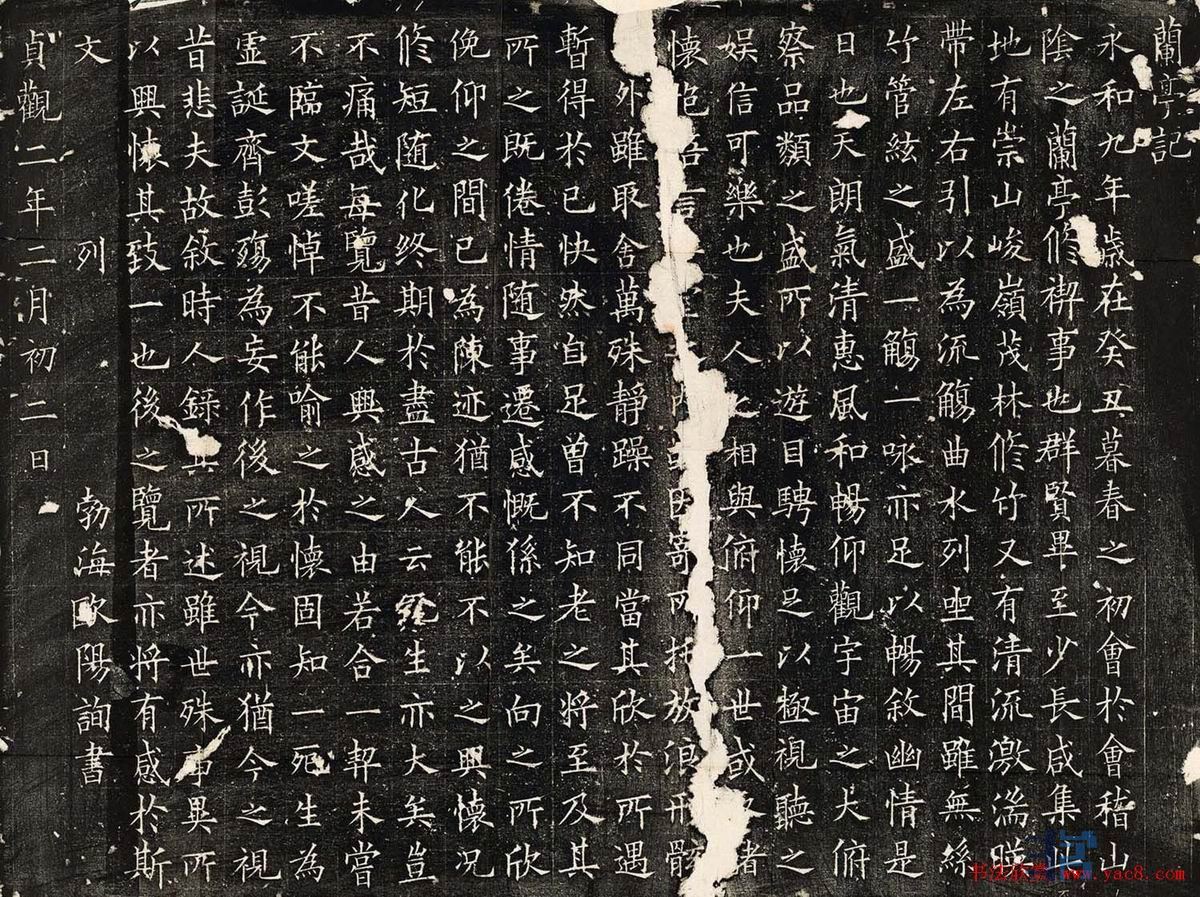 蘭亭記
永和九年歲在癸丑暮春之初會於會稽山
陰之蘭亭脩禊事也群賢畢至少長咸集
地有崇山峻嶺茂林脩竹又有清流激湍暎
帶左右引以為流觴曲水列坐其間雖無絲
竹管絃之盛一觴一咏亦足以暢敘幽情是
日也天朗氣清惠風和暢仰觀宇宙之大俯
察品類之盛所以遊目騁懷足以極視聽之
娱信可樂也夫人之相與俯仰一世或取諸
懷抱 寄所托放浪形骸
外雖取舍萬殊靜躁不同當其欣於所遇
暫得於已快然自足曾不知老之將至及其
所之既倦情隨事遷感慨係之矣向之所欣
俛仰之間已為陳迹猶不能不以之興懷况
脩短随化終期於盡古人云死生亦大矣豈
不痛哉每覽昔人興感之由若合一契未嘗
不臨文嗟悼不能喻之於懷固知一死生為
虛誕齊彭殤為妄作後之視今亦猶今之視
昔悲夫故敘時人錄其所述雖世殊事異所
以興懷其致一也後之覽者亦將有感於斯
文 列 勃海歐陽詢書
貞觀二年二月初二日
书法欣赏 www.yac8.com